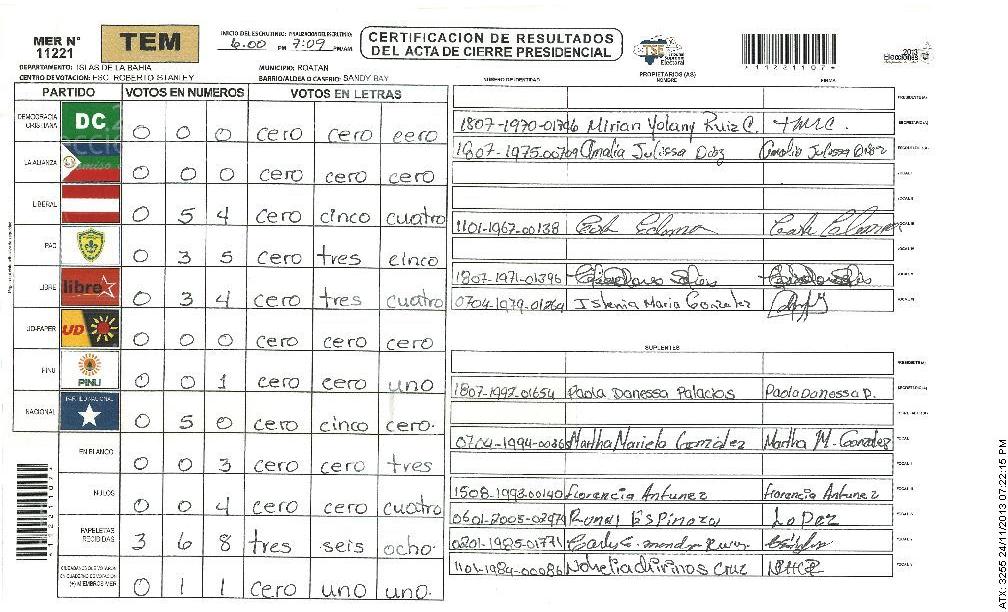 MER N° 11221
TEM
INICIO DEL ESCRUTINIO: FINALIZACION DEL ESCRUTINIO:
6:00 PM 7:09 PM/AM
CERTIFICACION DE RESULTADOS
DEL ACTA DE CIERRE PRESIDENCIAL
TSE Tribunal Supremo Electoral
1122107
2013 Elecciones
DEPARTAMENTO: ISLAS DE LA BAHIA MUNICIPIO: ROATAN
CENTRO DE VOTACION: ESC. ROBERTO STANLEY BARRIO/ALDEA O CASERIO: SANDY BAY
PARTIDO VOTOS EN NUMEROS VOTOS EN LETRAS
DEMOCRACIA CRISTIANA DC 0 0 0 cero cero cero
LA ALIANZA 0 0 0 cero cero cero
LIBERAL 0 5 4 cero cinco cuatro
PAC 0 3 5 cero tres cinco
LIBRE libre 0 3 4 cero tres cuatro
UD-FAPER UD 0 0 0 cero cero cero
PINU PINU 0 0 1 cero cero uno
NACIONAL PARTIDO NACIONAL 0 5 0 cero cinco cero.
EN BLANCO 0 0 3 cero cero tres
NULOS 0 0 4 cero cero cuatro
PAPELETAS RECIBIDAS 3 6 8 tres seis ocho.
CIUDADANOS QUE VOTARON EN CUADERNO DE VOTACION (+) MIEMBROS MER 0 1 1 cero uno uno.
NUMERO DE IDENTIDAD PROPIETARIOS (AS) NOMBRE FIRMA
PRESIDENTE(A)
1807-1970-01796 Mirian Yolany Ruiz C. SECRETARIO(A)
1807-1975-00709 Amalia Julissa Diaz Amalia Julissa Diaz
VOCAL I
1101-1967-00138
1807-1971-01396
0704-1979-01264 Istenia Maria Gonzalez
SUPLENTES
PRESIDENTE(A)
1807-1992-01654 Paola Danessa Palacios Paola Danessa P. SECRETARIO(A)
0704-1994-00365 Martha Mariela González Martha M. González
1508-1993-00140 Florencia Antunez Florencia Antunez
0601-2005-02979 Espinoza Lopez
0201-1985-01771
1101-1984-00086 Cruz
ATX: 3255 24/11/2013 07:22:15 PM